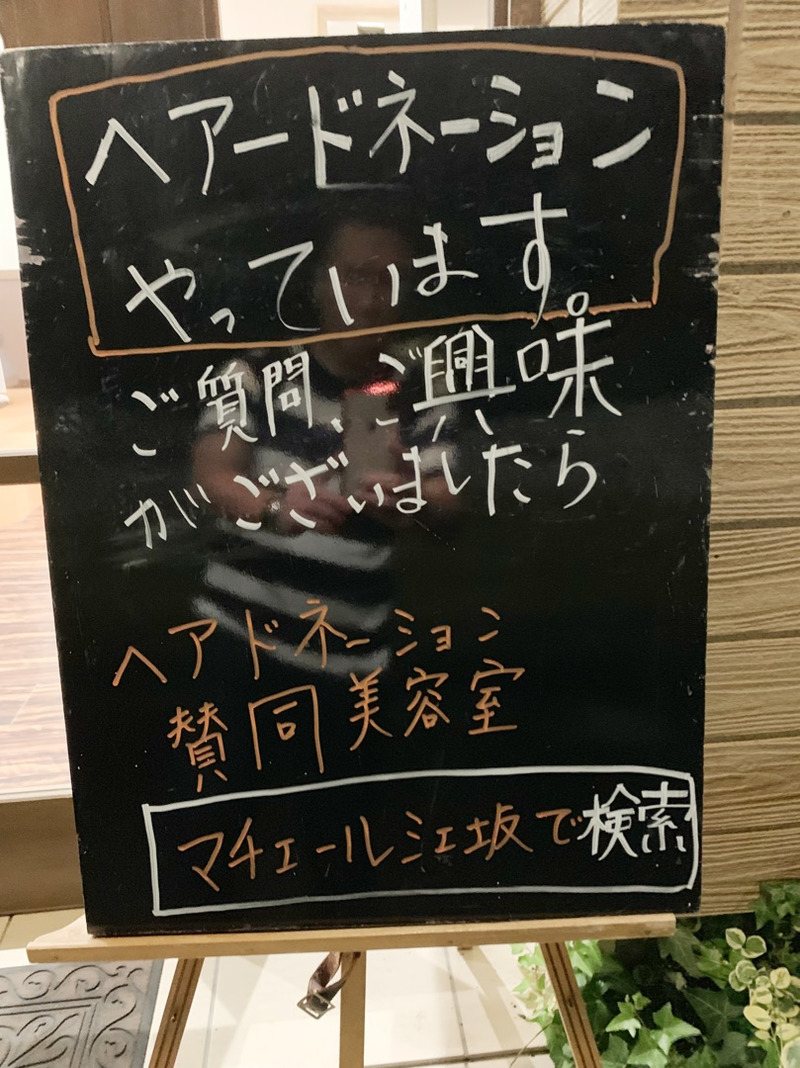 ヘアードネーション
やっています。
ご質問、ご興味
がございましたら
ヘアドネーション
賛同美容室
マチェール江坂で検索